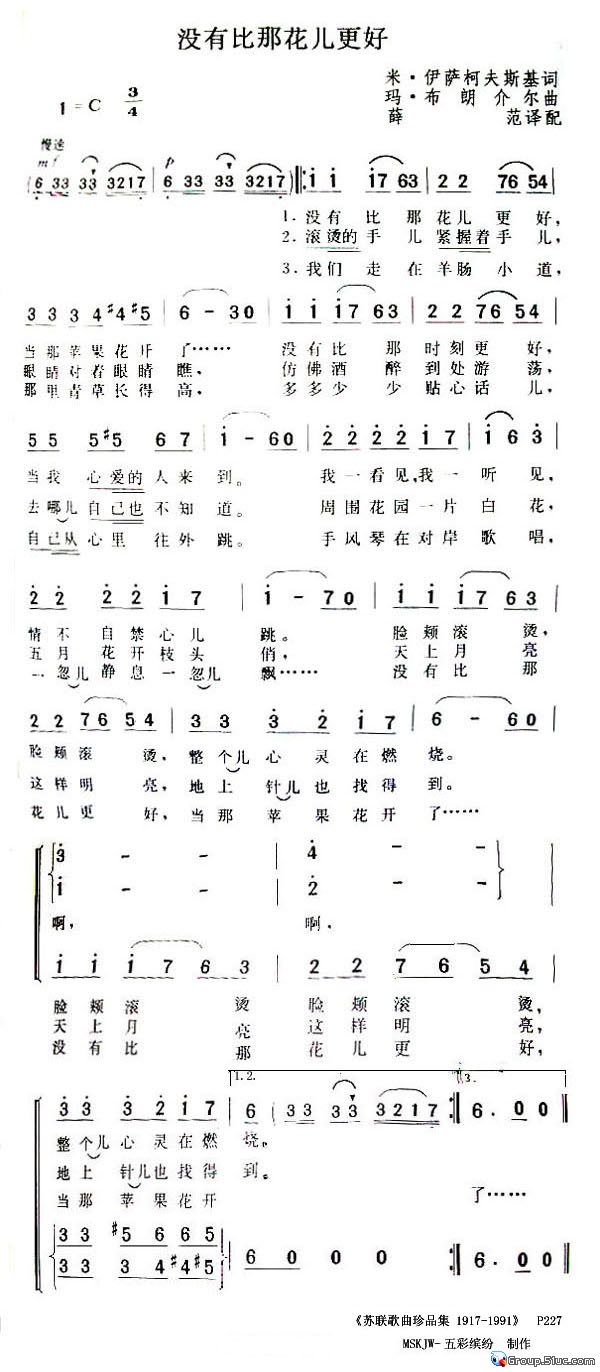 没有比那花儿更好
米·伊萨柯夫斯基词
1=C 3/4
玛·布朗介尔曲
薛范译配
慢速
mf p
(6 33 33 3217 | 6 33 33 3217) |: i i i7 63 | 2 2 76 54 |
1.没有比那花儿更好,
2.滚烫的手儿紧握着手儿,
3.我们走在羊肠小道,
3 3 3 3 4 #4 #5 | 6 - 30 | i i i7 63 | 2 2 76 54 |
当那苹果花开了…… 没有比那时刻更好,
眼睛对着眼睛瞧, 仿佛酒醉到处游荡,
那里青草长得高, 多多少少贴心话儿,
5 5 5 #5 6 7 | i - 60 | 2 2 2 2 2 2 | i 6 3 |
当我心爱的人来到。 我一看见,我一听见,
去哪儿自己也不知道。 周围花园一片白花,
自己从心里往外跳。 手风琴在对岸歌唱,
2 2 2 2 i 7 | i - 7 0 | i i i 7 6 3 |
情不自禁心儿跳。 脸颊滚烫,
五月花开枝头俏, 天上月亮
一忽儿静息一忽儿飘…… 没有比那
2 2 76 54 | 3 3 3 2 i7 | 6 - 60 |
脸颊滚烫,整个儿心灵在燃烧。
这样明亮,地上针儿也找得到。
花儿更好,当那苹果花开了……
3 - - | 4 - -
i - - | 2 - -
啊, 啊,
i i i 7 6 3 | 2 2 7 6 5 4
脸颊滚烫脸颊滚烫,
天上月亮这样明亮,
没有比那花儿更好,
1.2. 3.
3 3 3 2 i 7 | 6 (33 33 3217 :| 6. 0 0 ||
整个儿心灵在燃烧。
地上针儿也找得到。
当那苹果花开 了……
3 3 #5 6 6 5 | 6 0 0 0 0 0 :| 6. 0 0 ||
3 3 3 3 4 #4 #5
《苏联歌曲珍品集 1917-1991》 P227
MSKJW-五彩缤纷 制作
Group.51uc.com